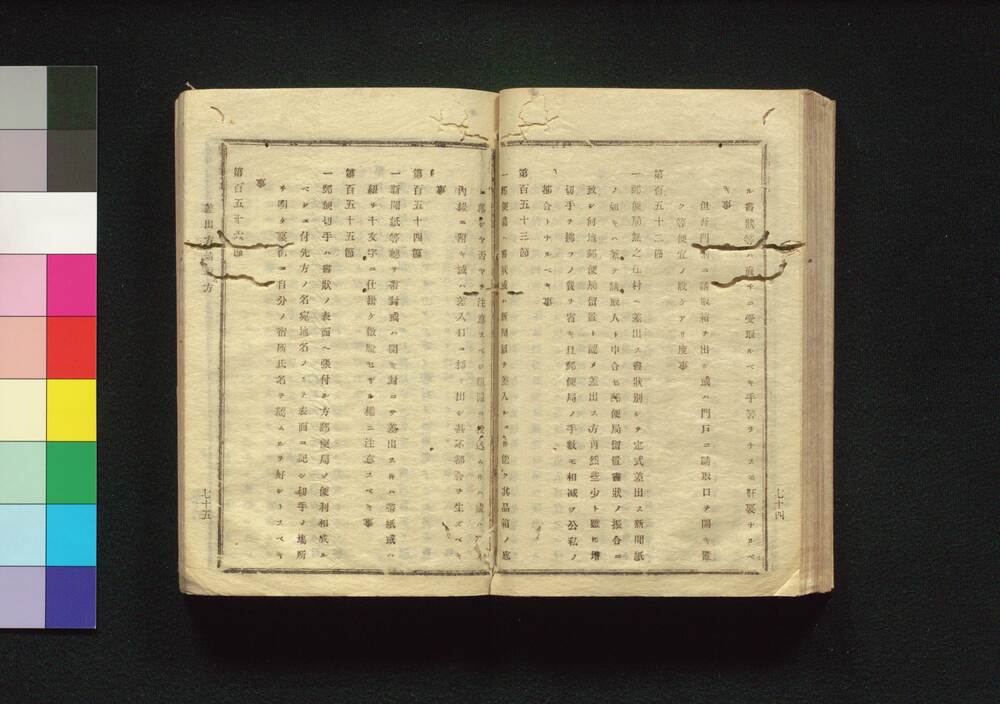 ル書狀等ハ直チニ受取ルベキ手當ヲナスヲ肝要ナルベ
キ事
但在門前ニ請取箱ヲ出シ或ハ門戸ニ請取口ヲ開キ置
ク等便宜ノ致シアリ度事
第百五十二節
一郵便局無之在村ヘ差出ス書狀別シテ定式差出ス新聞紙
ノ如キハ兼テ請取人ト申合セ郵便局留置書狀ノ振合ニ
致シ何地郵便局留置ト認メ差出ス方自然些少ト雖モ増
切手ヲ拂フノ費ヲ省キ且郵便局ノ手數モ相减ヲ公私ノ
都合トナルベキ事
第百五十三節
一郵便箱ヘ書狀或ハ新聞紙ヲ差入ルニハ能ク其品箱ノ底
ヤ否ヤヲ注意スベシ
內緣ニ附キ或ハ差入口ニ挿リ出シ甚不都合ヲ生ズベキ
事
第百五十四節
一新聞紙等總テ帶封或ハ開キ封ニテ差出スハ帶紙或ハ
紐ヲ十文字ニ仕掛ケ散脫セザル樣ニ注意スベキ事
第百五十五節
一郵便切手ハ書狀ノ表面ヘ張付ル方郵便局ノ便利相成ル
ベシ付先方ノ名宛地名ノミヲ表面ニ記シ切手ノ場所
ヲ明ケ裏面ニ自分ノ宿所氏名ヲ認ムルヲ好シトスベキ
事
第百五十六節
差出方
七十四
七十五